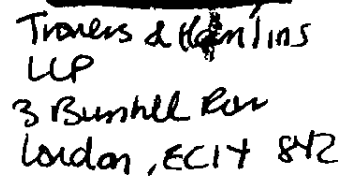 Travers & Hamlins
LLP
3 Bunhill Row
London, EC1Y 8YZ